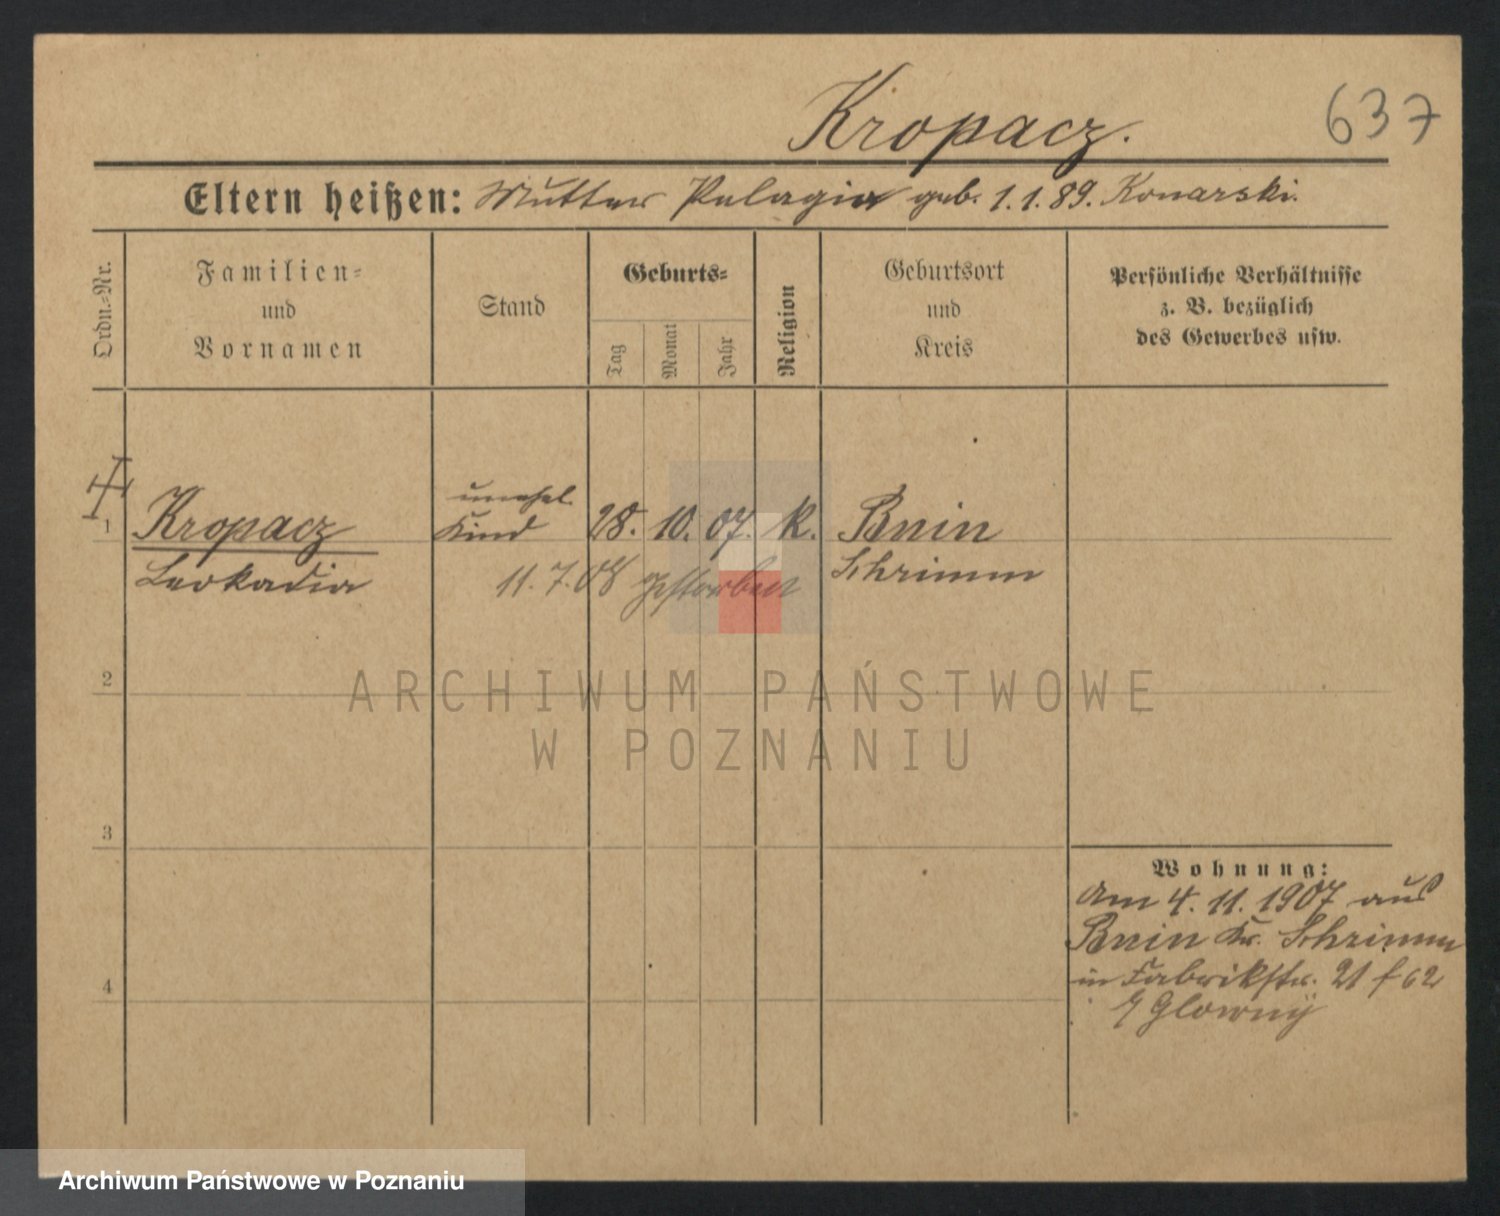 637
Kropacz.
Eltern heißen: Mutter Pelagia geb. 1.1.89. Konarski.
Ordn.-Nr.
Familien- und Vornamen
Stand
Geburts-
Tag
Monat
Jahr
Religion
Geburtsort und Kreis
Persönliche Verhältnisse
z. B. bezüglich
des Gewerbes usw.
unehel.
1 Kropacz Kind 28. 10. 07. k. Bnin
Leokadia 11.7.08 gestorben Schrimm
2
ARCHIWUM PAŃSTWOWE
W POZNANIU
3
Wohnung:
Am 4. 11. 1907 aus
Bnin Kr. Schrimm
4
in Fabrikstr. 21
Glowny
Archiwum Państwowe w Poznaniu